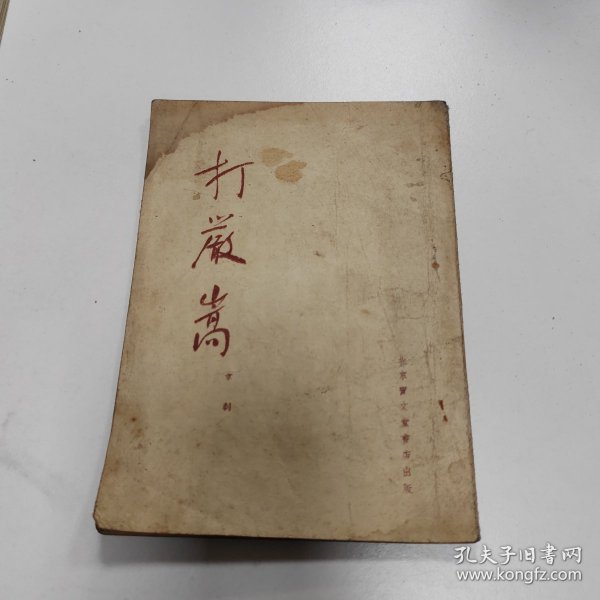 打嚴嵩
京劇
北京寶文堂書店出版
孔夫子旧书网
www.kongfz.com